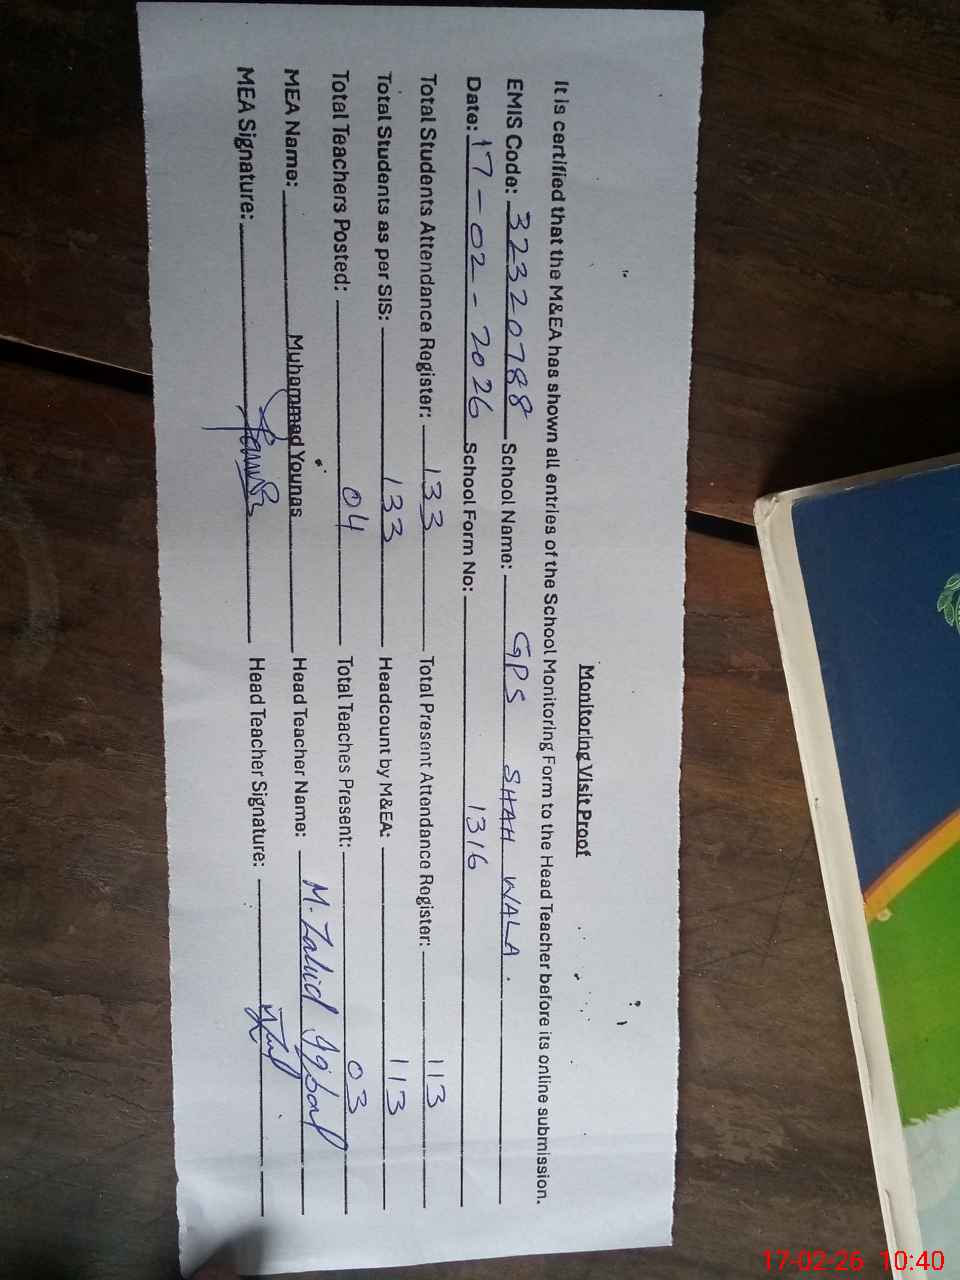 Monitoring Visit Proof
It is certified that the M&EA has shown all entries of the School Monitoring Form to the Head Teacher before its online submission.
EMIS Code: 32320788 School Name: GPS SHAH WALA.
Date: 17-02-2026 School Form No: 1316
Total Students Attendance Register: 133 Total Present Attendance Register: 113
Total Students as per SIS: 133 Headcount by M&EA: 113
Total Teachers Posted: 04 Total Teaches Present: 03
MEA Name: Muhammad Younas Head Teacher Name: M. Zahid Iqbal
MEA Signature: Head Teacher Signature:
17-02-26 10:40